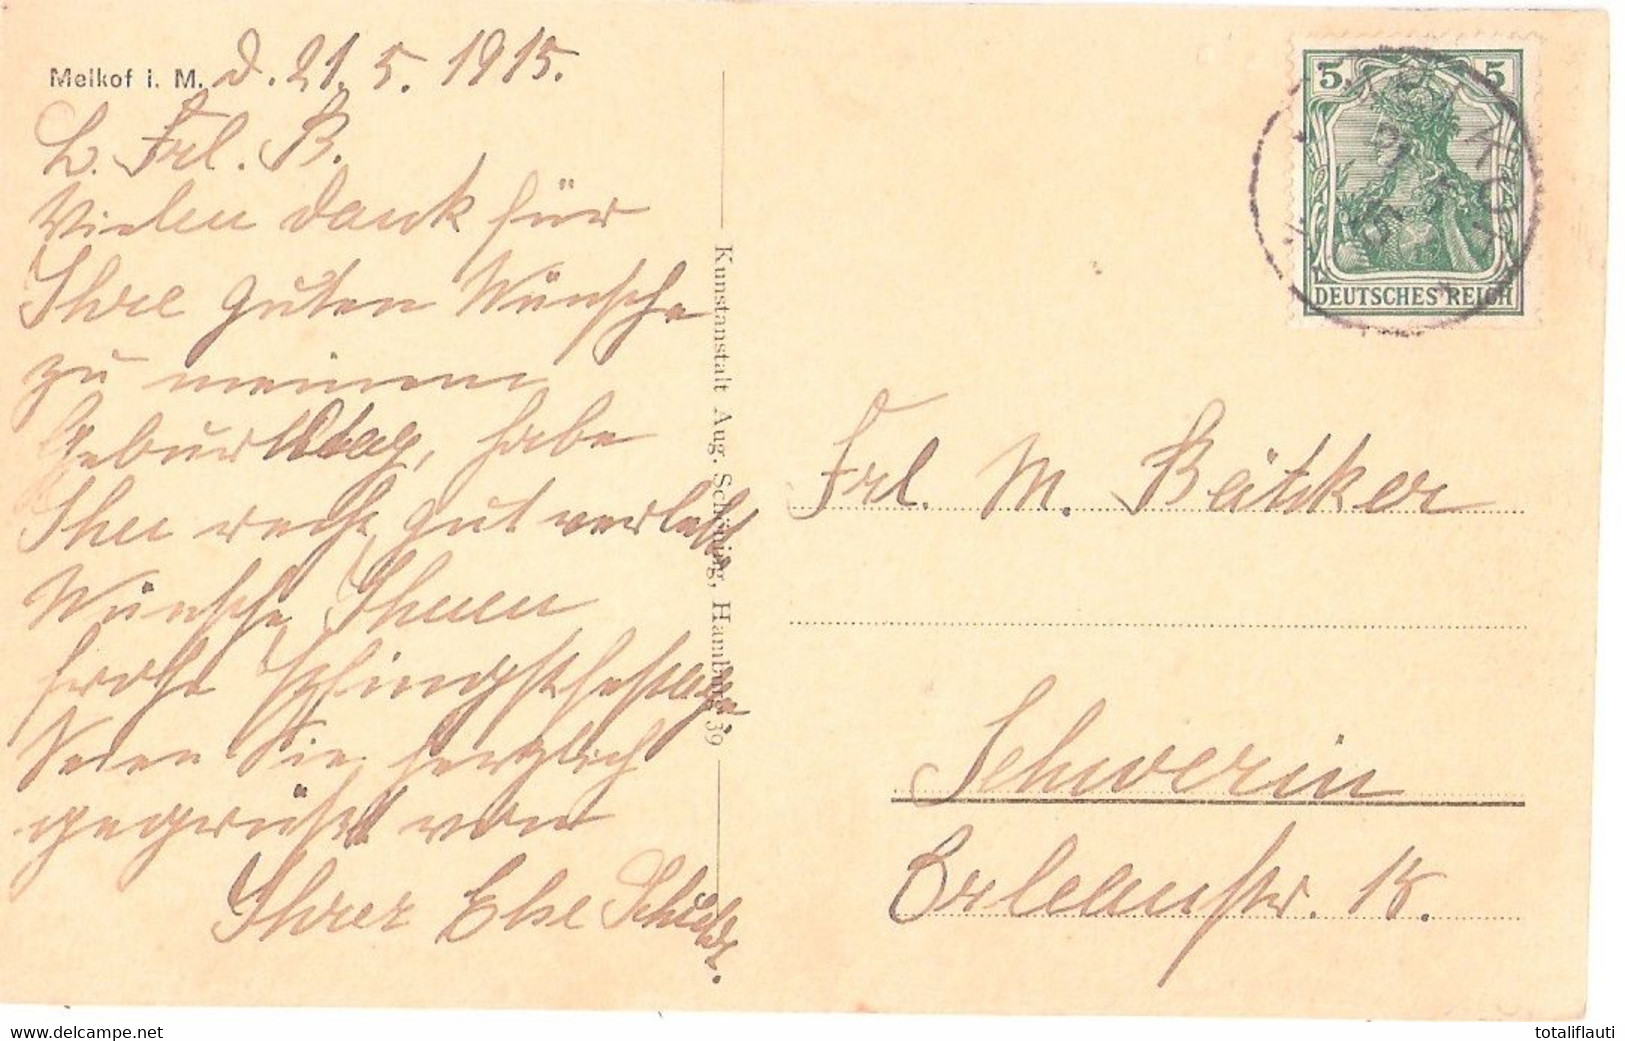 Melkof i. M. d. 21. 5. 1915.
L. Frl. B.
Vielen Dank für
Ihre guten Wünsche
zu meinem
Geburtstag, habe
Ihn recht gut verlebt
Wünsche Ihnen
frohe Pfingstfesttage
Seien Sie herzlich
gegrüßt von
Ihrer Else
Kunstanstalt Aug. Schöning, Hamburg 39
5 5
DEUTSCHES REICH
Frl. M. Bätcker
Schwerin
Orleanstr. 15.
www.delcampe.net
totaliflauti